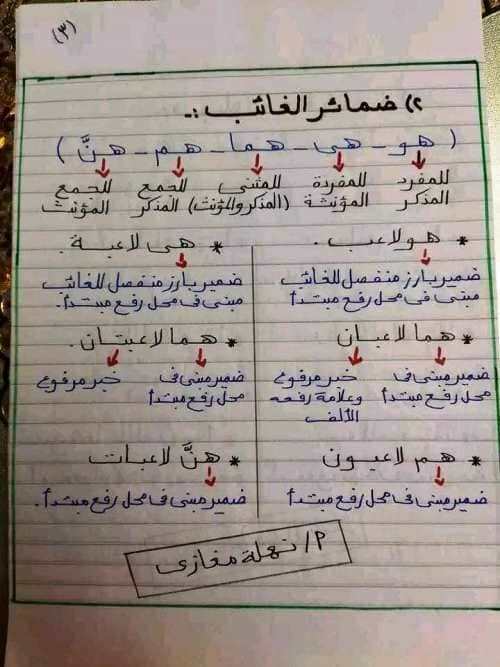 (٣)
٢) ضمائر الغائب :ـ
( هو ـ هى ـ هما ـ هم ـ هنَّ )
للمفرد المذكر
للمفردة المؤنثة
للمثنى (المذكر والمؤنث)
للجمع المذكر
للجمع المؤنث
* هو لاعب .
ضمير بارز منفصل للغائب
مبنى فى محل رفع مبتدأ
* هى لاعبة .
ضمير بارز منفصل للغائب
مبنى فى محل رفع مبتدأ .
* هما لاعبان
ضمير مبنى فى
محل رفع مبتدأ
خبر مرفوع
وعلامة رفعه
الألف
* هما لاعبتان .
ضمير مبنى فى
محل رفع مبتدأ
خبر مرفوع
* هم لاعبون
ضمير مبنى فى محل رفع مبتدأ
* هنَّ لاعبات
ضمير مبنى فى محل رفع مبتدأ .
م/ نهلة مغازى